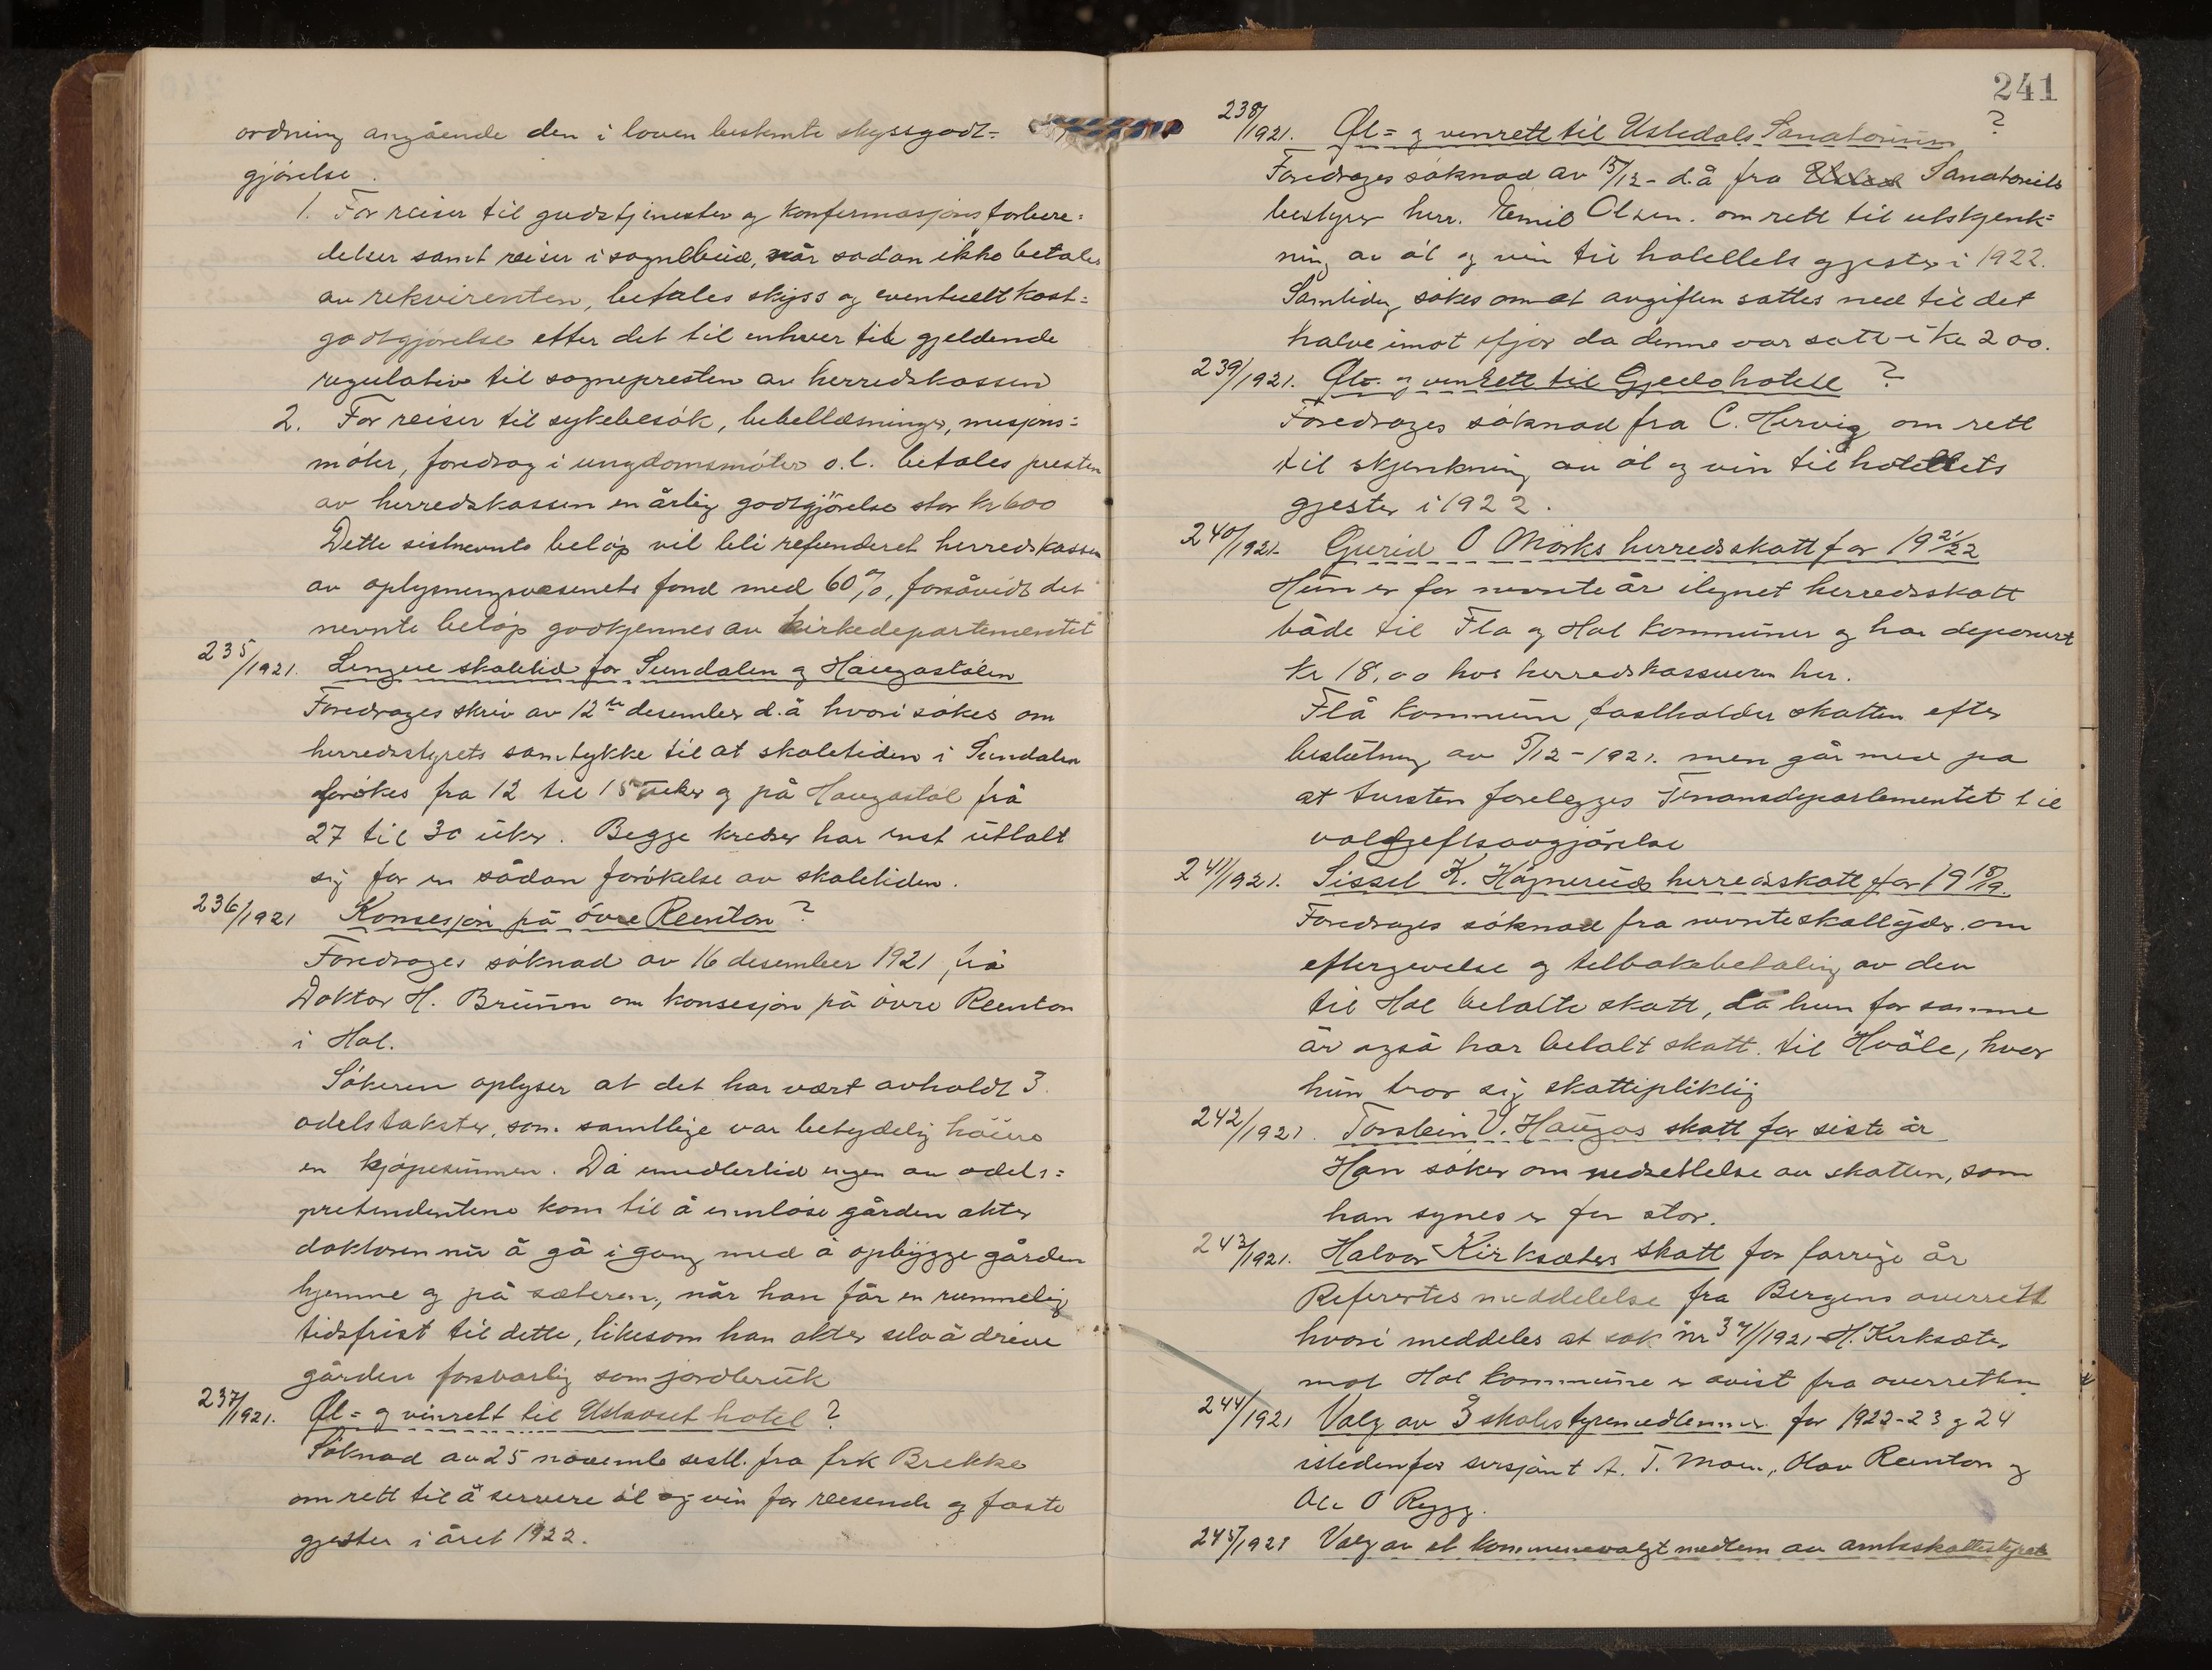 ordning angående den i loven bestemte skyssgodt=
gjörelse.
1. For reiser til gudstjenester og konfermasjonsforbere=
delser samt reiser i sognebud, når sådan ikke betales
av rekvirenten, betales skyss og eventuelt kost=
godtgjörelse efter det til enhver tid gjeldende
regulativ til sognepresten av herredskassen
2. For reiser til sykebesök, bibellæsninger, misjons=
möter, foredrag i ungdomsmöter o.l. betales presten
av herredskassen en årlig godtgjörelse stor kr 600
Dette sistnevnte belöp vil bli refunderet herredskassen
av oplysningsvæsenets fond med 60%, forsåvidt det
nevnte belöp godkjennes av kirkedepartementet
235/1921. Lengere skoletid for Sundalen og Haugastölen
Foredrages skriv av 12te desember d.å hvori sökes om
herredsstyrets samtykke til at skoletiden i Sundalen
forökes fra 12 til 15 uker og på Haugastöl frå
27 til 30 uker. Begge kredser har enst uttalt
sig for en sådan forökelse av skoletiden.
236/1921 Konsesjon på övre Reenton?
Foredrages söknad av 16 desember 1921 frå
Doktor H. Bruun om konsesjon på övre Reenton
i Hol.
Sökeren oplyser at det har vært avholdt 3
odelstakster, som samtlige var betydelig höiere
en kjöpesummen. Då imidlertid ingen av odels=
pretendentene kom til å innlöse gården akter
doktoren nu å gå i gang med å opbygge gården
hjemme og på sæteren, når han får en rummelig
tidsfrist til dette, likesom han akter selv å drive
gården forsvarlig som jordbruk
237/1921. Öl= og vinrett til Ustaoset hotel?
Söknad av 25 novemb sistl. fra frk Brekke
om rett til å servere öl og vin for reisende og faste
gjester i året 1922.
241
238/1921. Öl= og vinrett til Ustedals Sanatorium ?
Foredrages söknad av 15/12- d.å fra Sanatoriets
bestyrer herr. Emil Olsen. om rett til utskjenk=
ning av öl og vin til hotellets gjester i 1922.
Samtidig sökes om at avgiften sattes ned til det
halve imot ifjor da denne var satt i kr 200.
239/1921. Öl- og vinrett til Gjeilo hotell ?
Foredrages söknad fra C. Hervig om rett
til skjenkning av öl og vin til hotellets
gjester i 1922.
240/1921- Gurid O Mörks herredsskatt for 1921/22
Hun er for nevnte år ilignet herredsskatt
både til Flå og Hol kommuner og har deponert
kr 18,00 hos herredskassereren her.
Flå kommune fastholder skatten efter
beslutning av 5/12-1921. men går med på
at tvisten forelegges Finansdepartementet til
voldgiftsavgjörelse
241/1921. Sissel K. Högneruds herredsskatt for 1918/19.
Foredrages söknad fra nevnte skattyder om
eftergivelse og tilbakebetaling av den
til Hol betalte skatt, då hun for samme
år også har betalt skatt til Hvåle, hvor
hun tror sig skattepliktig
242/1921. Torstein O. Haugos skatt for siste år
Han söker om nedsettelse av skatten, som
han synes er for stor.
243/1921. Halvor Kirksæters skatt for forrige år
Referertes meddelelse fra Bergens overrett
hvori meddeles at sak nr 37/1921 H. Kirksæter
mot Hol kommune er avist fra overretten
244/1921 Valg av 3 skolestyremedlemmer for 1922-23 og 24
istedenfor sersjant A. T. Moen, Olav Reenton og
Ole O Rygg.
245/1921 Valg av et kommunevalgt medlem av amtsskattestyret